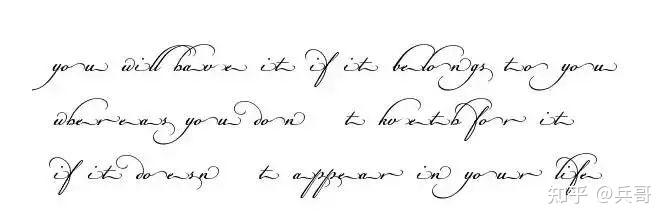 you will have it if it belongs to you
whereas you don t kvetch for it
if it doesn t appear in your life
知乎 @兵哥